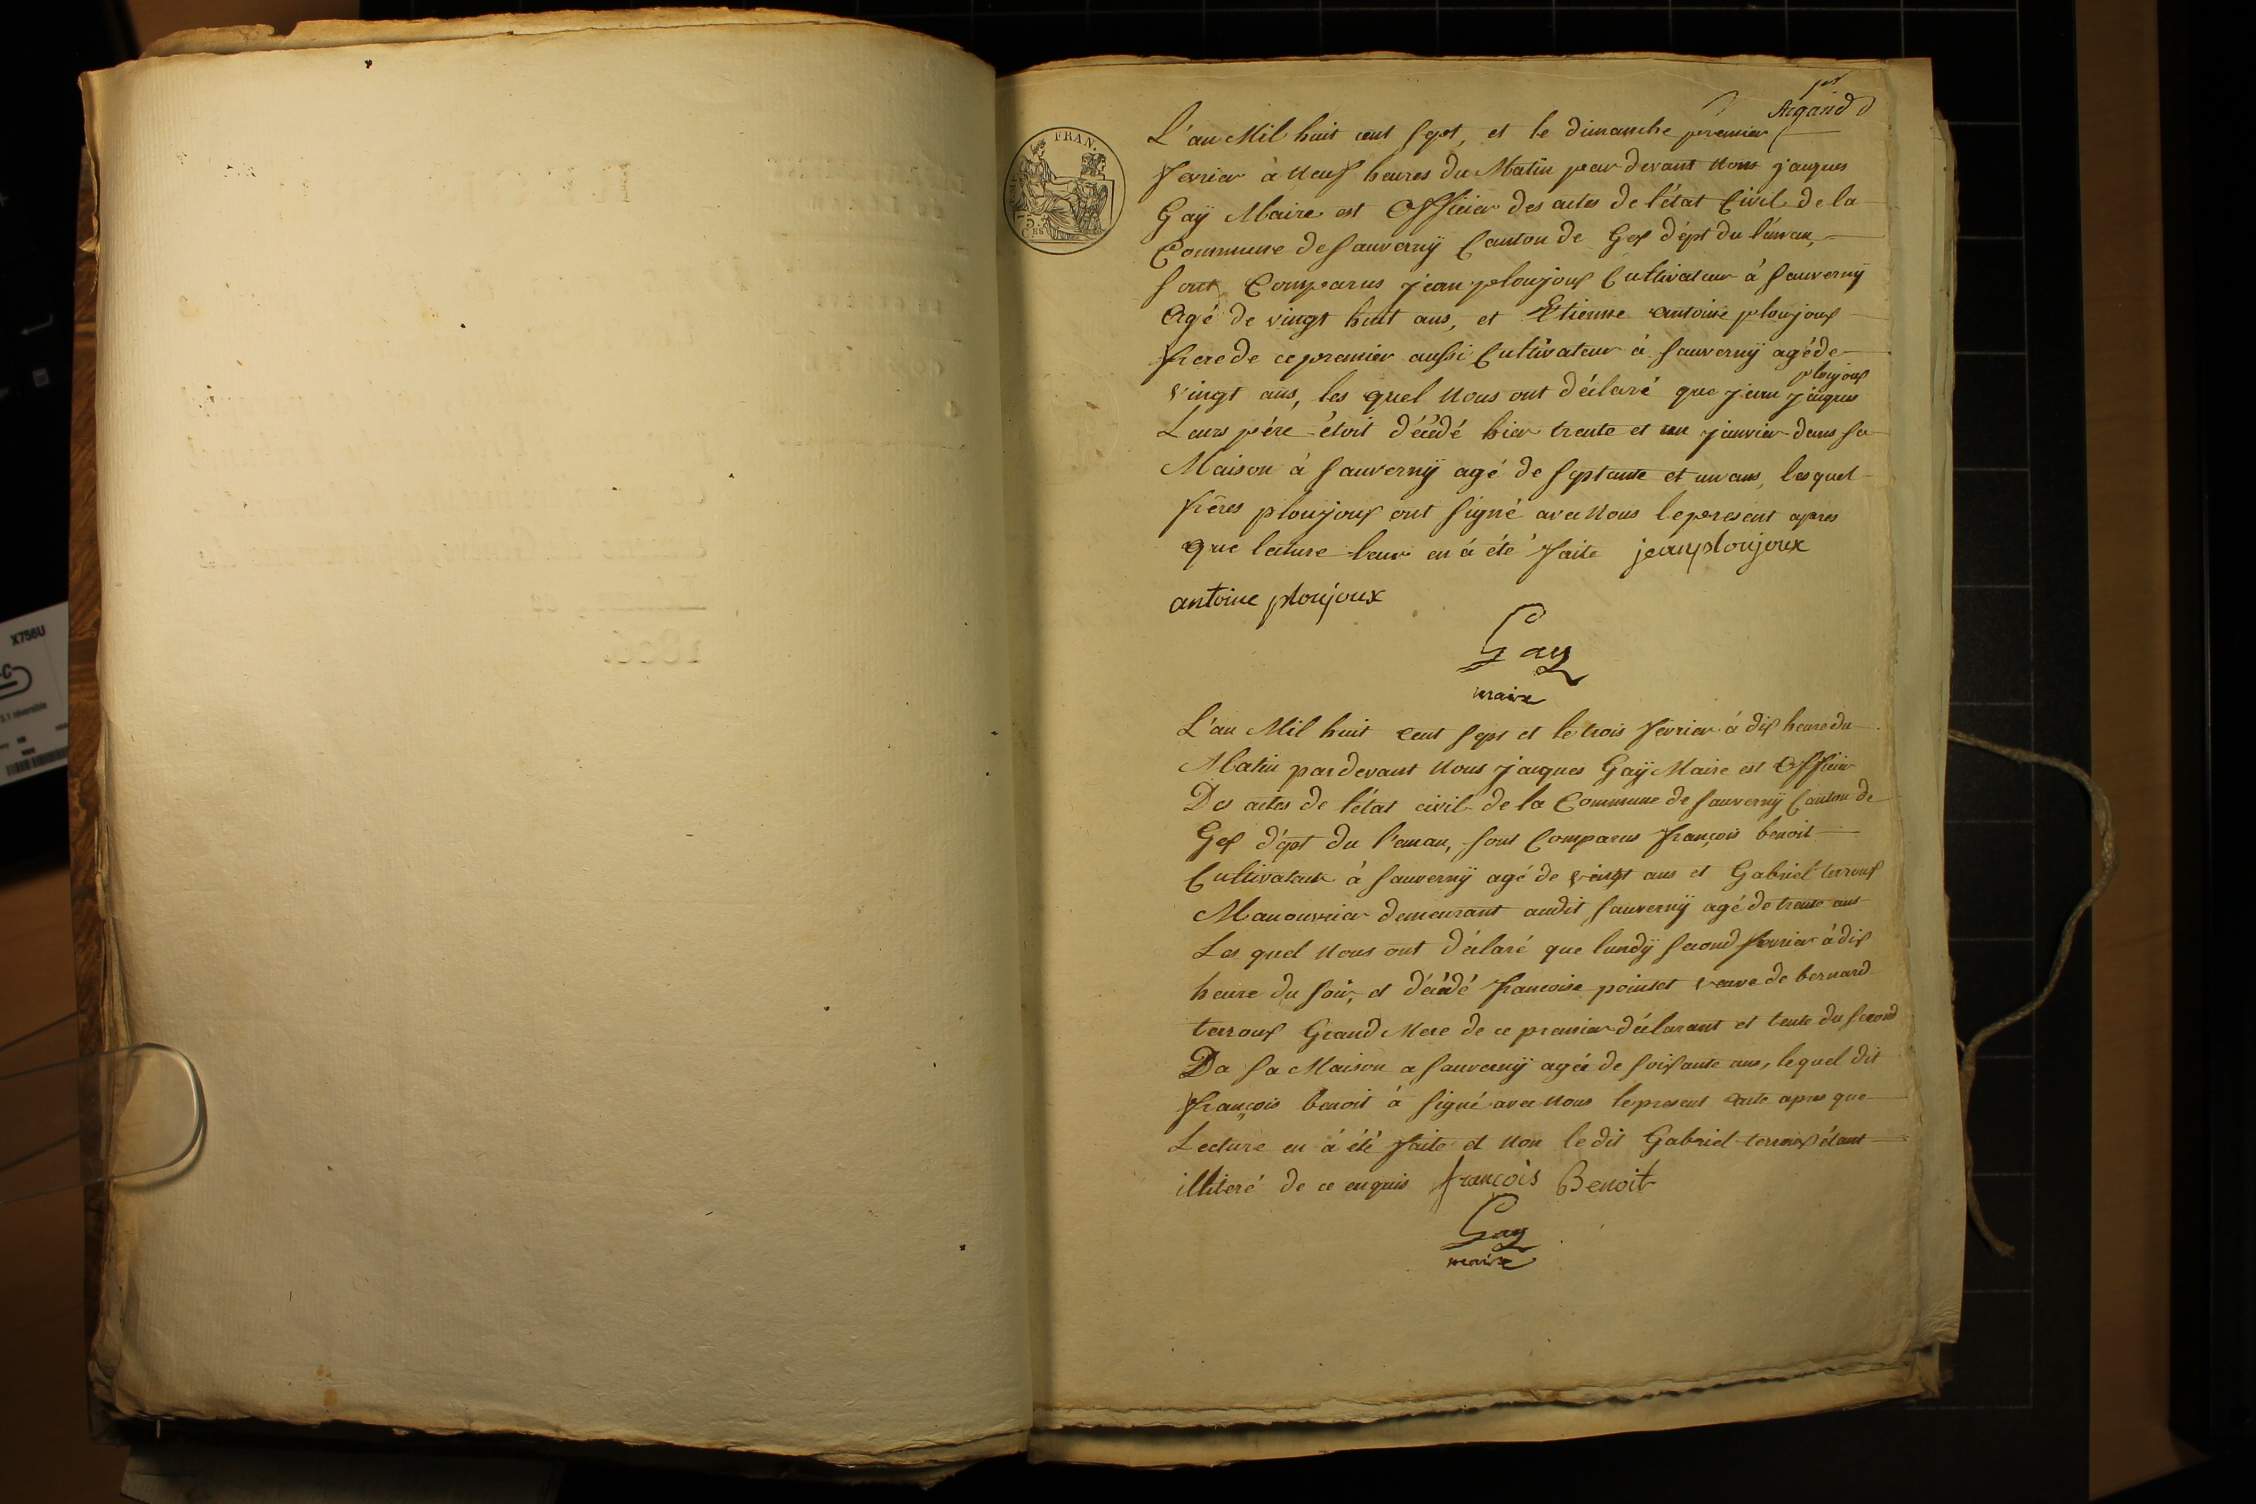 1er
Argand
L'an Mil huit cent sept, et le dimanche premier
fevrier à neuf heures du Matin par devant nous jaques
Gaÿ Maire est Officier des actes de l'état Civil de la
Commune de sauvernÿ Canton de Gex dépt du Léman,
sont Comparus jean ploujoux Cultivateur à sauvernÿ
agé de vingt huit ans, et Etienne antoine ploujoux
frere de ce premier aussi Cultivateur à sauvernÿ agé de
vingt ans, les quel nous ont déclaré que jean jaques ploujoux
Leurs pére étoit décédé hier trente et un janvier dans sa
Maison à sauvernÿ agé de septante et un ans, les quel
fréres ploujoux ont signé avec nous le present apres
que lecture leur en à été faite jean ploujoux
antoine ploujoux
Gay
maire
L'an Mil huit cent sept et le trois fevrier à dix heure du
Matin par devant nous jacques Gaÿ Maire est Officier
Des actes de l'état civil de la Commune de sauvernÿ Canton de
Gex dépt du léman, sont Comparus françois benoit
Cultivateur à sauvernÿ agé de vingt ans et Gabriel terroux
Manouvrier demeurant audit sauvernÿ agé de trente ans
Les quel nous ont déclaré que lundÿ second fevrier à dix
heure du soir, et décédé francoise poinset veuve de bernard
terroux Grand Mere de ce premier déclarant et tente du second
Da sa Maison a sauvernÿ agée de soixante ans, le quel dit
françois benoit à signé avec nous le present acte apres que
Lecture en à été faite et non le dit Gabriel terroux étant
illiteré de ce enquis françois Benoit
Gay
maire
FRAN.
X756U